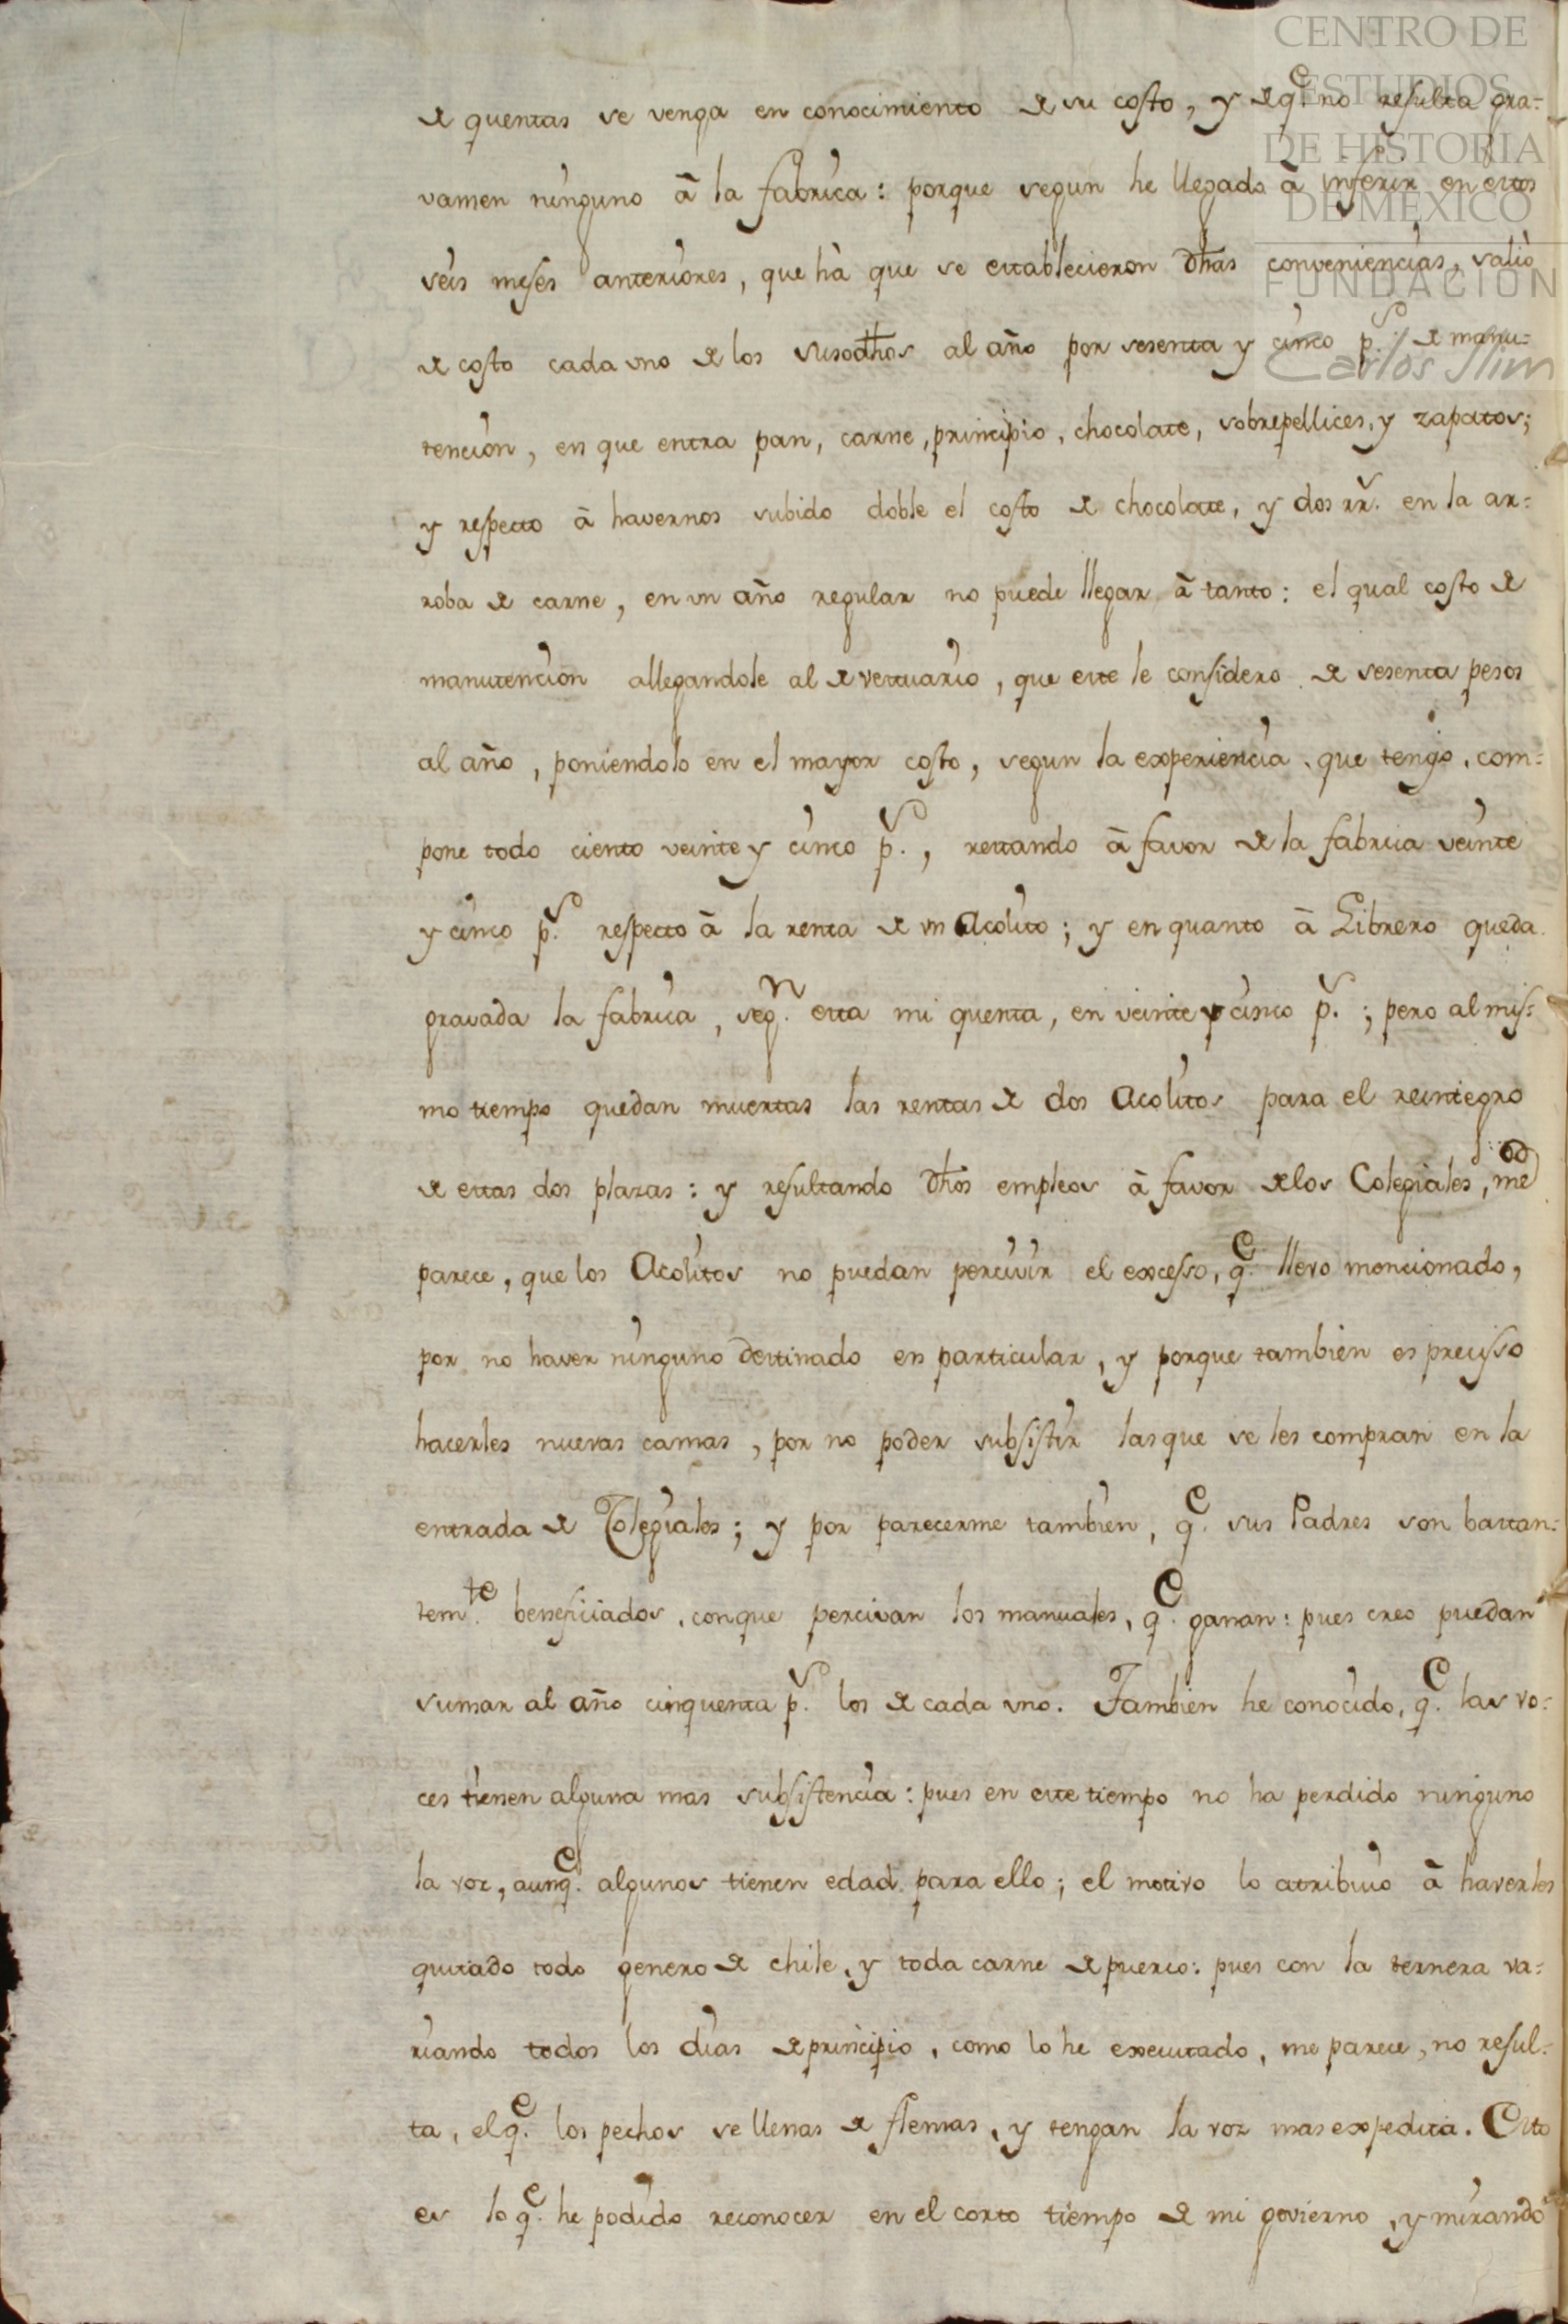 CENTRO DE
ESTUDIOS
DE HISTORIA
DE MÉXICO
FUNDACIÓN
Carlos Slim
de quentas se venga en conocimiento de su costo, y de q.e no resulta gra-
vamen ninguno â la fabrica: porque segun he llegado â inferir en estos
seis meses anteriores, que hà que se establecieron dhas conveniencias, saliò
de costo cada uno de los susodhos al año por sesenta y cinco p.s de manu-
tencion, en que entra pan, carne, principio, chocolate, sobrepellices, y zapatos;
y respecto â havernos subido doble el costo de chocolate, y dos rr.s en la ar-
roba de carne, en un año regular no puede llegar â tanto: el qual costo de
manutencion allegandole al de vestuario, que este le considero de sesenta pesos
al año, poniendolo en el mayor costo, segun la experiencia, que tengo, com-
pone todo ciento veinte y cinco p.s, restando â favor de la fabrica veinte
y cinco p.s respecto â la renta de un Acolito; y en quanto â Librero queda
gravada la fabrica, seg.n esta mi quenta, en veinte y cinco p.s; pero al mis-
mo tiempo quedan muertas las rentas de dos Acolitos para el reintegro
de estas dos plazas: y resultando dhos empleos â favor de los Colegiales, me
parece, que los Acolitos no puedan percivir el excesso, q.e llevo mencionado,
por no haver ninguno destinado en particular, y porque tambien es precisso
hacerles nuevas camas, por no poder subsistir las que se les compran en la
entrada de Colegiales; y por parecerme tambien, q.e sus Padres son bastan-
tem.te beneficiados, conque percivan los manuales, q.e ganan: pues creo puedan
sumar al año cinquenta p.s los de cada uno. Tambien he conocido, q.e las vo-
ces tienen alguna mas subsistencia: pues en este tiempo no ha perdido ninguno
la voz, aunq.e algunos tienen edad para ello; el motivo lo atribuio â haverles
quitado todo genero de chile, y toda carne de puerco: pues con la ternera va-
riando todos los dias de principio, como lo he executado, me parece, no resul-
ta, el q.e los pechos se llenas de flemas, y tengan la voz mas expedita. Esto
es lo q.e he podido reconocer en el corto tiempo de mi govierno, y mirando